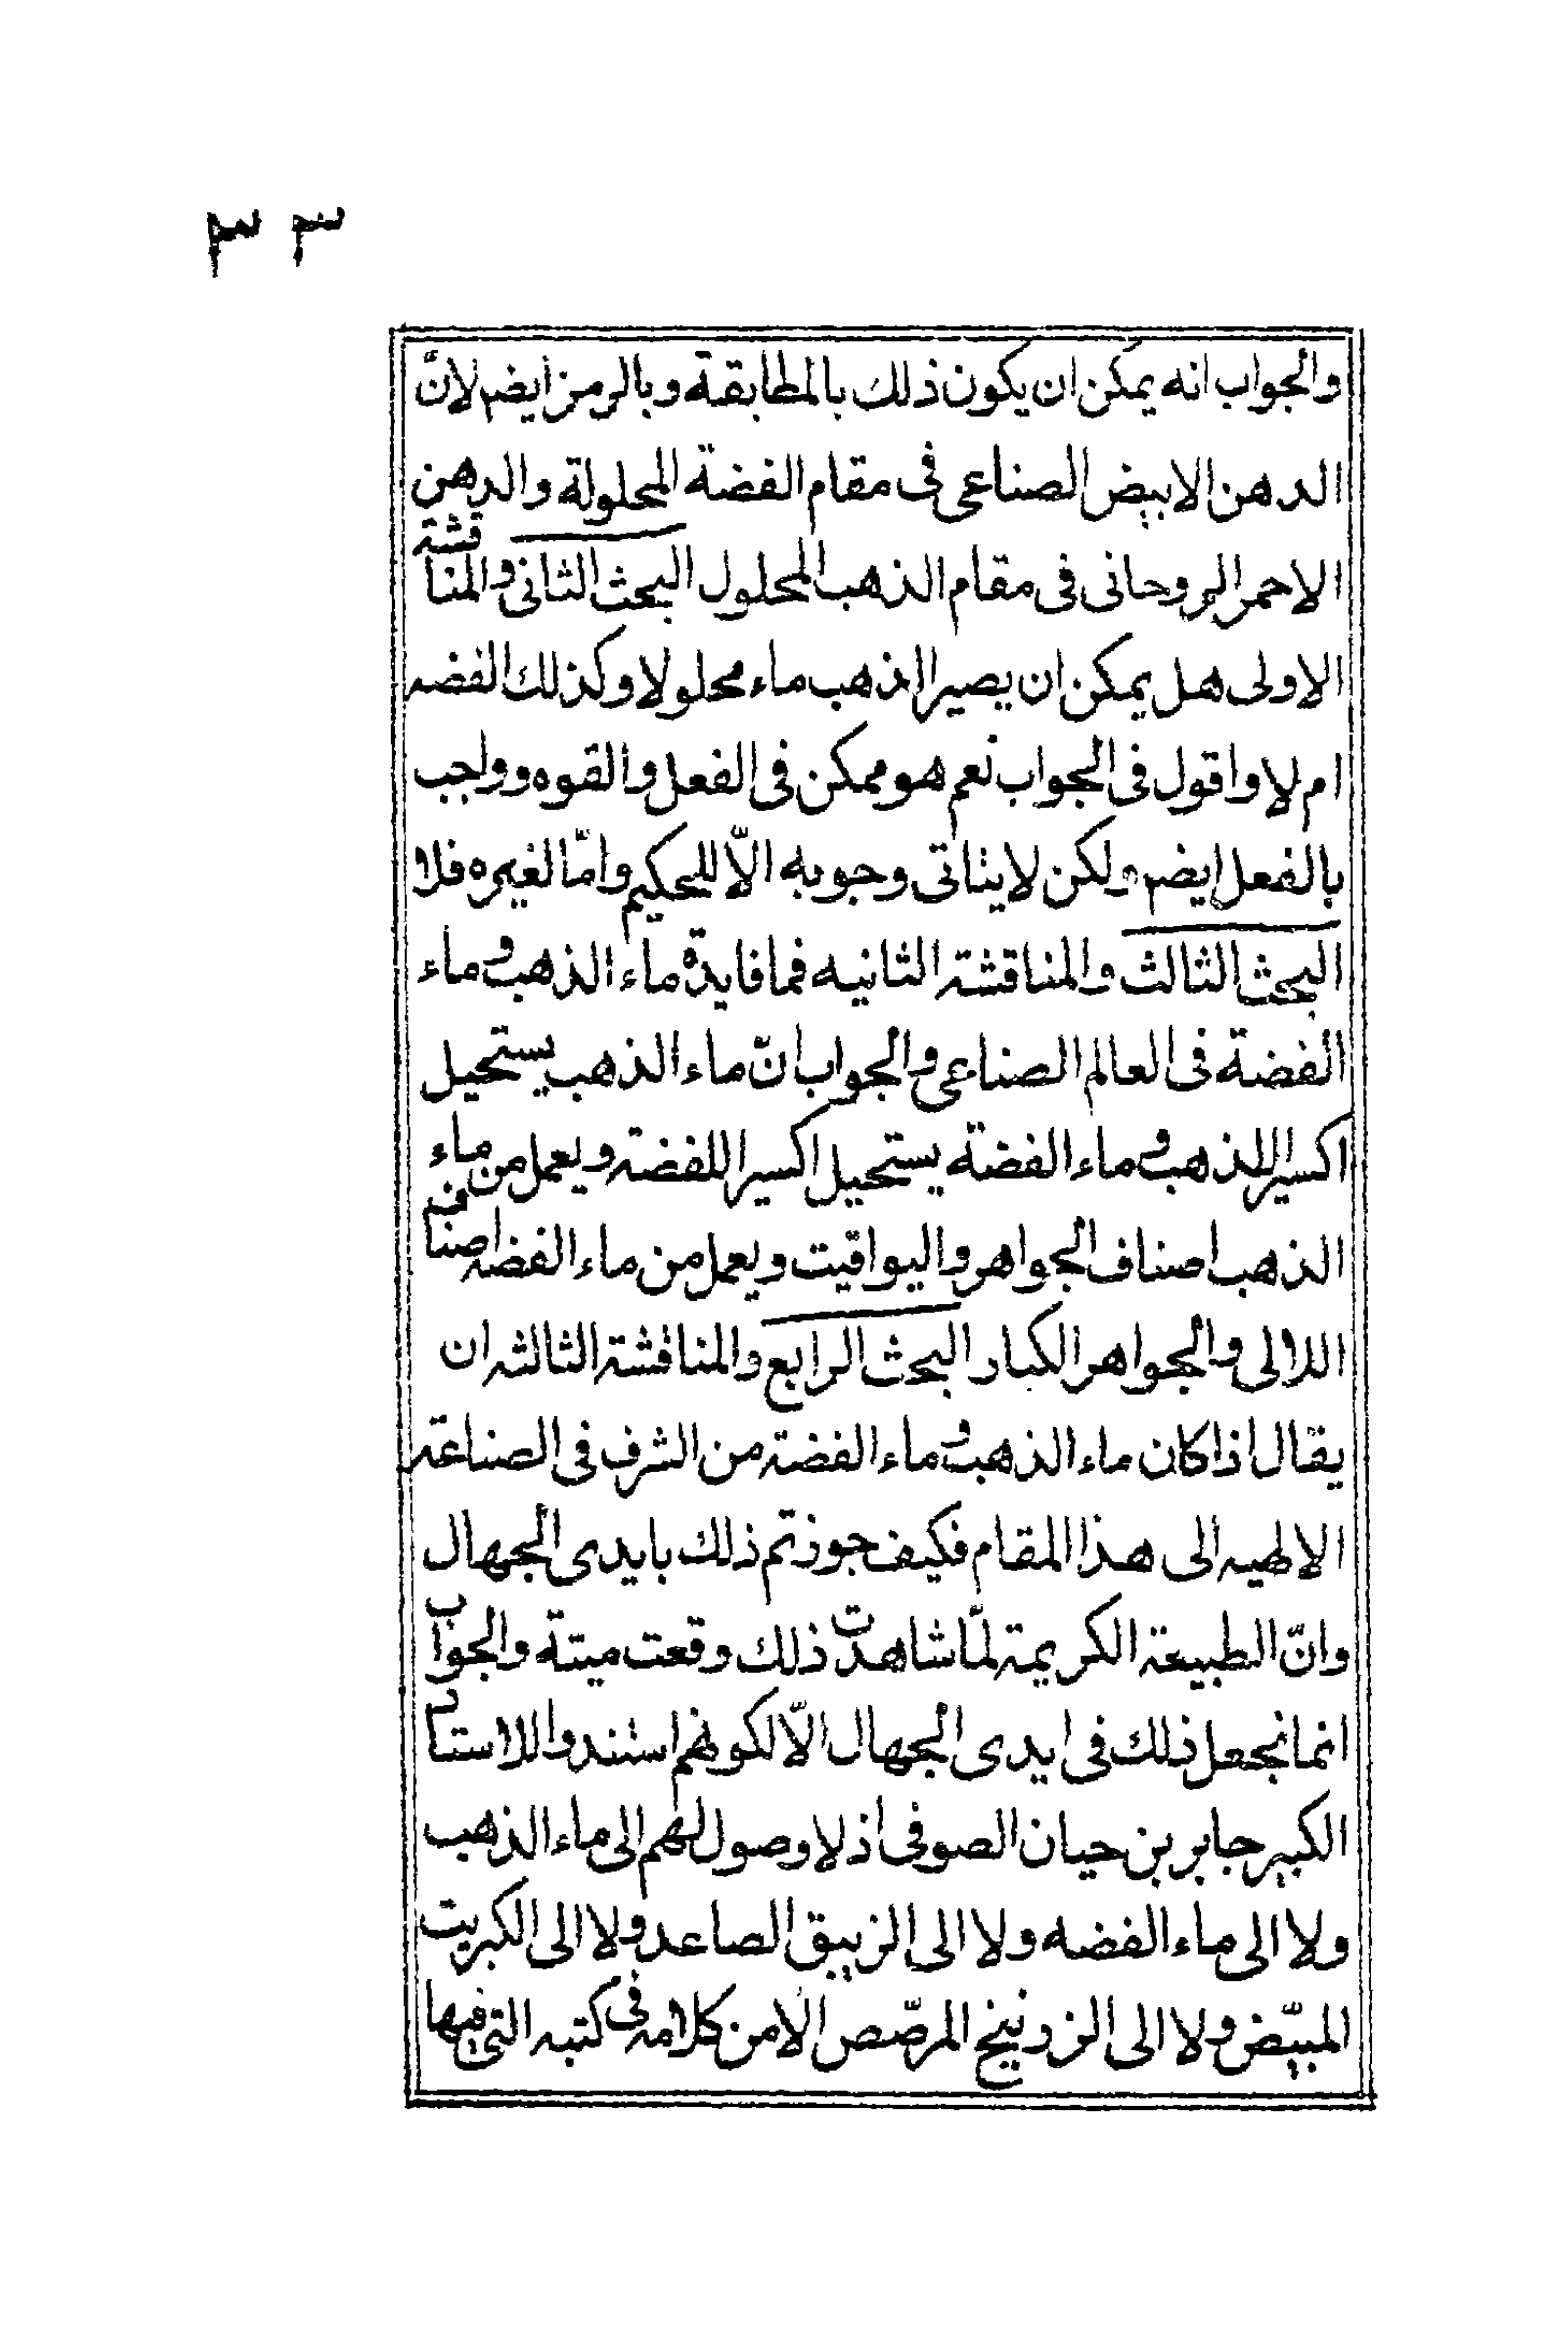 ٣٣
والجواب انه يمكن ان يكون ذلك بالمطابقة وبالرمز ايضم لانّ
الدهن الابيض الصناعى فى مقام الفضة المحلولة والدهن
الاحمر الروحانى فى مقام الذهب المحلول البحث الثانى والمناقشة
الاولى هل يمكن ان يصير الذهب ماء محلولا وكذلك الفضه
ام لا واقول فى الجواب نعم هو ممكن فى الفعل والقوه وواجب
بالفعل ايضم ولكن لا يتاتى وجوبه الّا للحكيم وامّا لغيره فلا
البحث الثالث والمناقشة الثانيه فما فايدة ماء الذهب وماء
الفضة فى العالم الصناعى والجواب انّ ماء الذهب يستحيل
اكسيرا للذهب وماء الفضة يستحيل اكسيرا للفضة ويعمل من ماء
الذهب اصناف الجواهر واليواقيت ويعمل من ماء الفضه اصناف
اللالى والجواهر الكبار البحث الرابع والمناقشة الثالثه ان
يقال اذا كان ماء الذهب وماء الفضة من الشرف فى الصناعة
الالهيه الى هذا المقام فكيف جوزتم ذلك بايدى الجهال
وانّ الطبيعة الكريمة لمّا شاهدت ذلك وقعت ميتة والجواب
انما نجعل ذلك فى ايدى الجهال الّا لكونهم استندوا للاستاد
الكبير جابر بن حيان الصوفى اذ لا وصول لهم الى ماء الذهب
ولا الى ماء الفضه ولا الى الزيبق الصاعد ولا الى الكبريت
المبيّض ولا الى الزرنيخ المرصّص الا من كلامه فى كتبه التى فيها